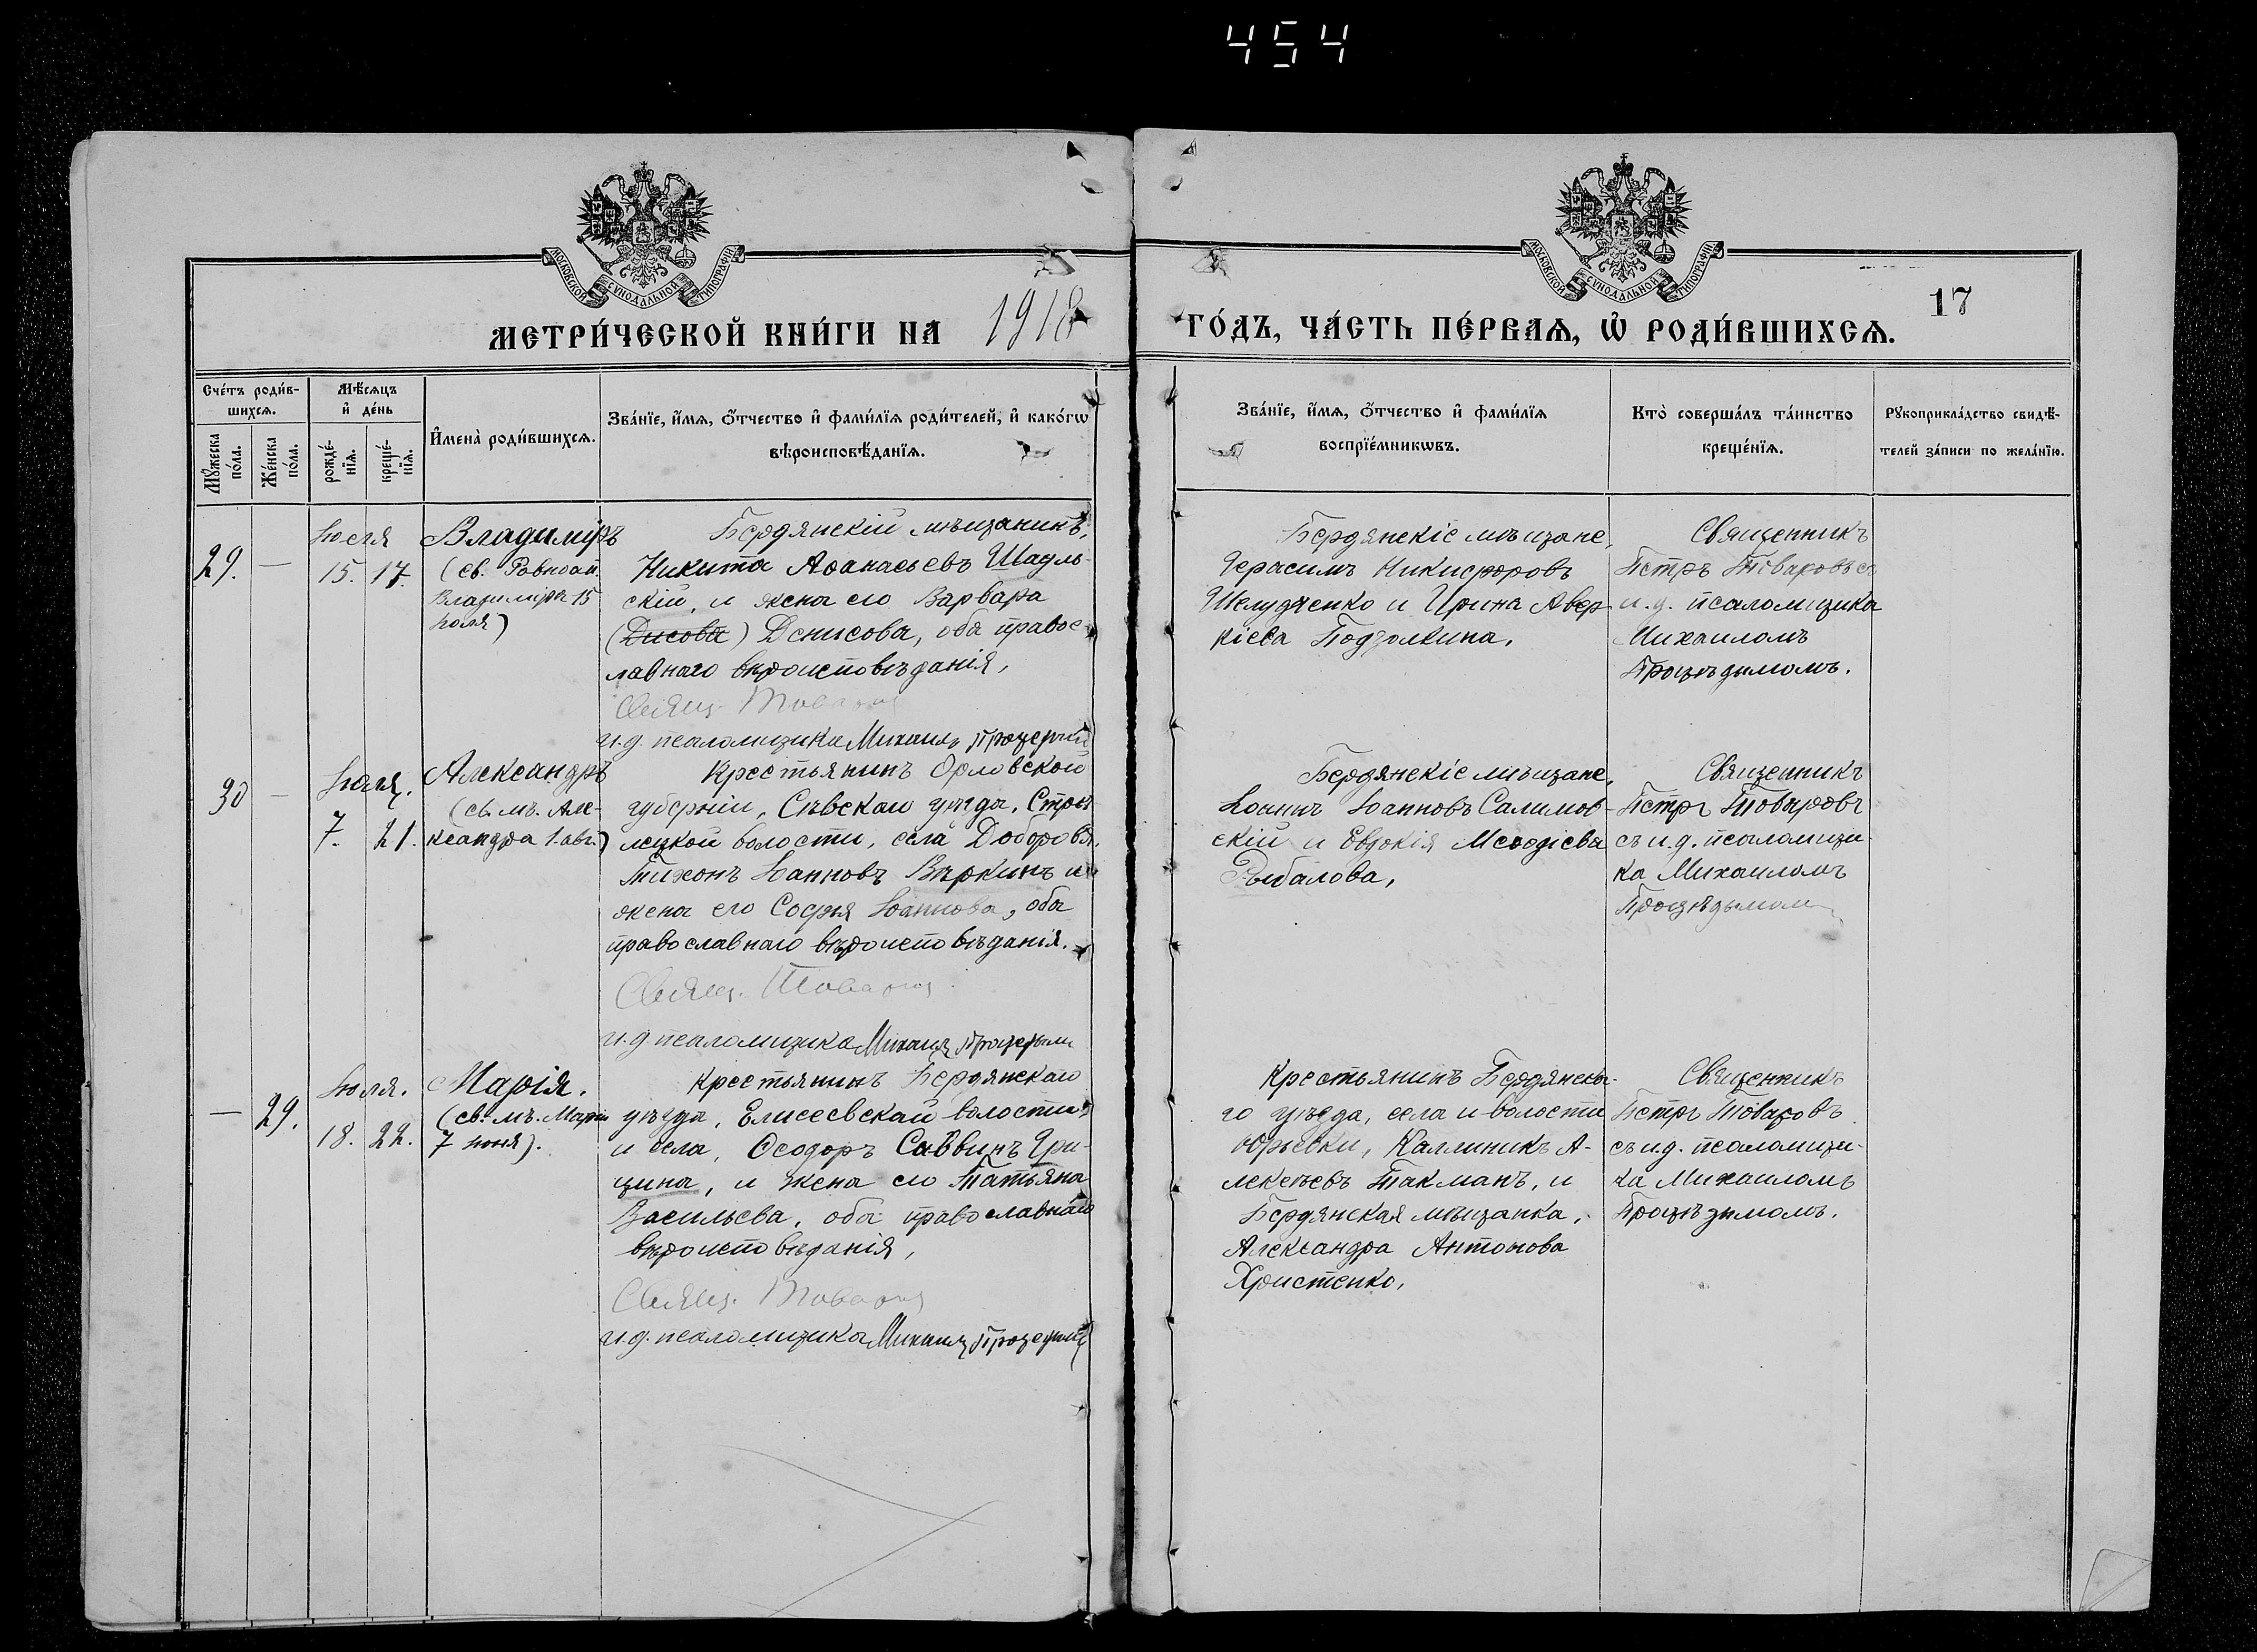 454
МОСКОВСКОЙ СѴНОДАЛЬНОЙ ТИПОГРАФІИ
МОСКОВСКОЙ СѴНОДАЛЬНОЙ ТИПОГРАФІИ
17
МЕТРИ́ЧЕСКОЙ КНИ́ГИ НА 1918 ГО́ДЪ, ЧА́СТЬ ПЕ́РВАѦ, Ѽ РОДИ́ВШИХСѦ.
Сче́тъ роди́в-
шихсѧ.
Мꙋ́жеска по́ла.
Же́нска по́ла.
Мѣ́сѧцъ
и҆ де́нь
рожде́-
нїѧ.
креще́-
нїѧ.
И҆мена̀ роди́вшихсѧ.
Зва́нїе, и҆́мѧ, ѻ҆́тчество и҆ фами́лїѧ роди́телей, и҆ како́гѡ
вѣроисповѣ́данїѧ.
Зва́нїе, и҆́мѧ, ѻ҆́тчество и҆ фами́лїѧ
воспрїе́мникѡвъ.
Кто̀ соверша́лъ та́инство
креще́нїѧ.
Рꙋкоприкла́дство свидѣ́-
телей за́писи по жела́нїю.
29.
—
Іюля
15. 17.
Владиміръ
(св. Равноап.
Владиміра 15
Іюля)
Бердянскій мѣщанинъ,
Никита Аѳанасьевъ Шадль-
скій, и жена его Варвара
(Дисова) Денисова, оба правос-
лавнаго вѣроисповѣданія,
Свящ.
и.д. псаломщика Михаилъ
Бердянскіе мѣщане,
Герасимъ Никифоровъ
Шелудченко и Ирина Авер-
кіева Подзолкина,
Священникъ
Петръ Товаровъ съ
и.д. псаломщика
Михаиломъ
30
—
Іюля.
7. 21.
Александръ
(св. мч. Але-
ксандра 1. авг.)
Крестьянинъ Орловской
губерніи, Сѣвскаго уѣзда, Стрѣ-
лецкой волости, села
Тихонъ Іоанновъ Вѣркинъ и
жена его Софья Іоаннова, оба
православнаго вѣроисповѣданія.
Свящ.
и.д. псаломщика Михаилъ
Бердянскіе мѣщане,
Іоаннъ Іоанновъ Салимов-
скій и Евдокія Меѳодіева
Рыбалова,
Священникъ
Петръ Товаровъ
съ и.д. псаломщи-
ка Михаиломъ
—
29.
Іюля.
18. 22.
Марія.
(св. мч. Маріи
7 Іюня).
Крестьянинъ Бердянскаго
уѣзда, Елисеевской волости
и села, Ѳеодоръ Саввинъ Гри-
цина, и жена его Татьяна
Васильева, оба православнаго
вѣроисповѣданія,
Свящ.
и.д. псаломщика Михаилъ
Крестьянинъ Бердянска-
го уѣзда, села и волости
Юрьевки, Каллиникъ А-
лексѣевъ Такманъ, и
Бердянская мѣщанка,
Александра Антонова
Христенко,
Священникъ
Петръ Товаровъ
съ и.д. псаломщи-
ка Михаиломъ